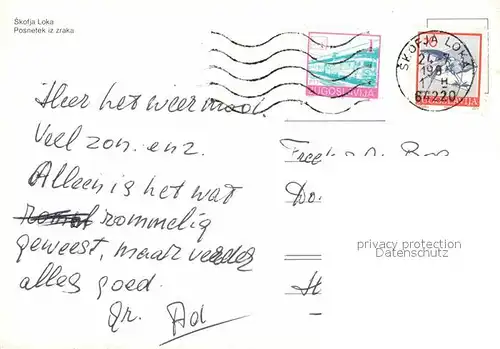 Škofja Loka
Posnetek iz zraka
JUGOSLAVIJA
10
ŠKOFJA LOKA
64220
JUGOSLAVIJA
Heer het weer mooi.
Veel zon. enz.
Alleen is het wat
rommelig
geweest, maar verder
alles goed.
Gr. Ad
privacy protection
Datenschutz